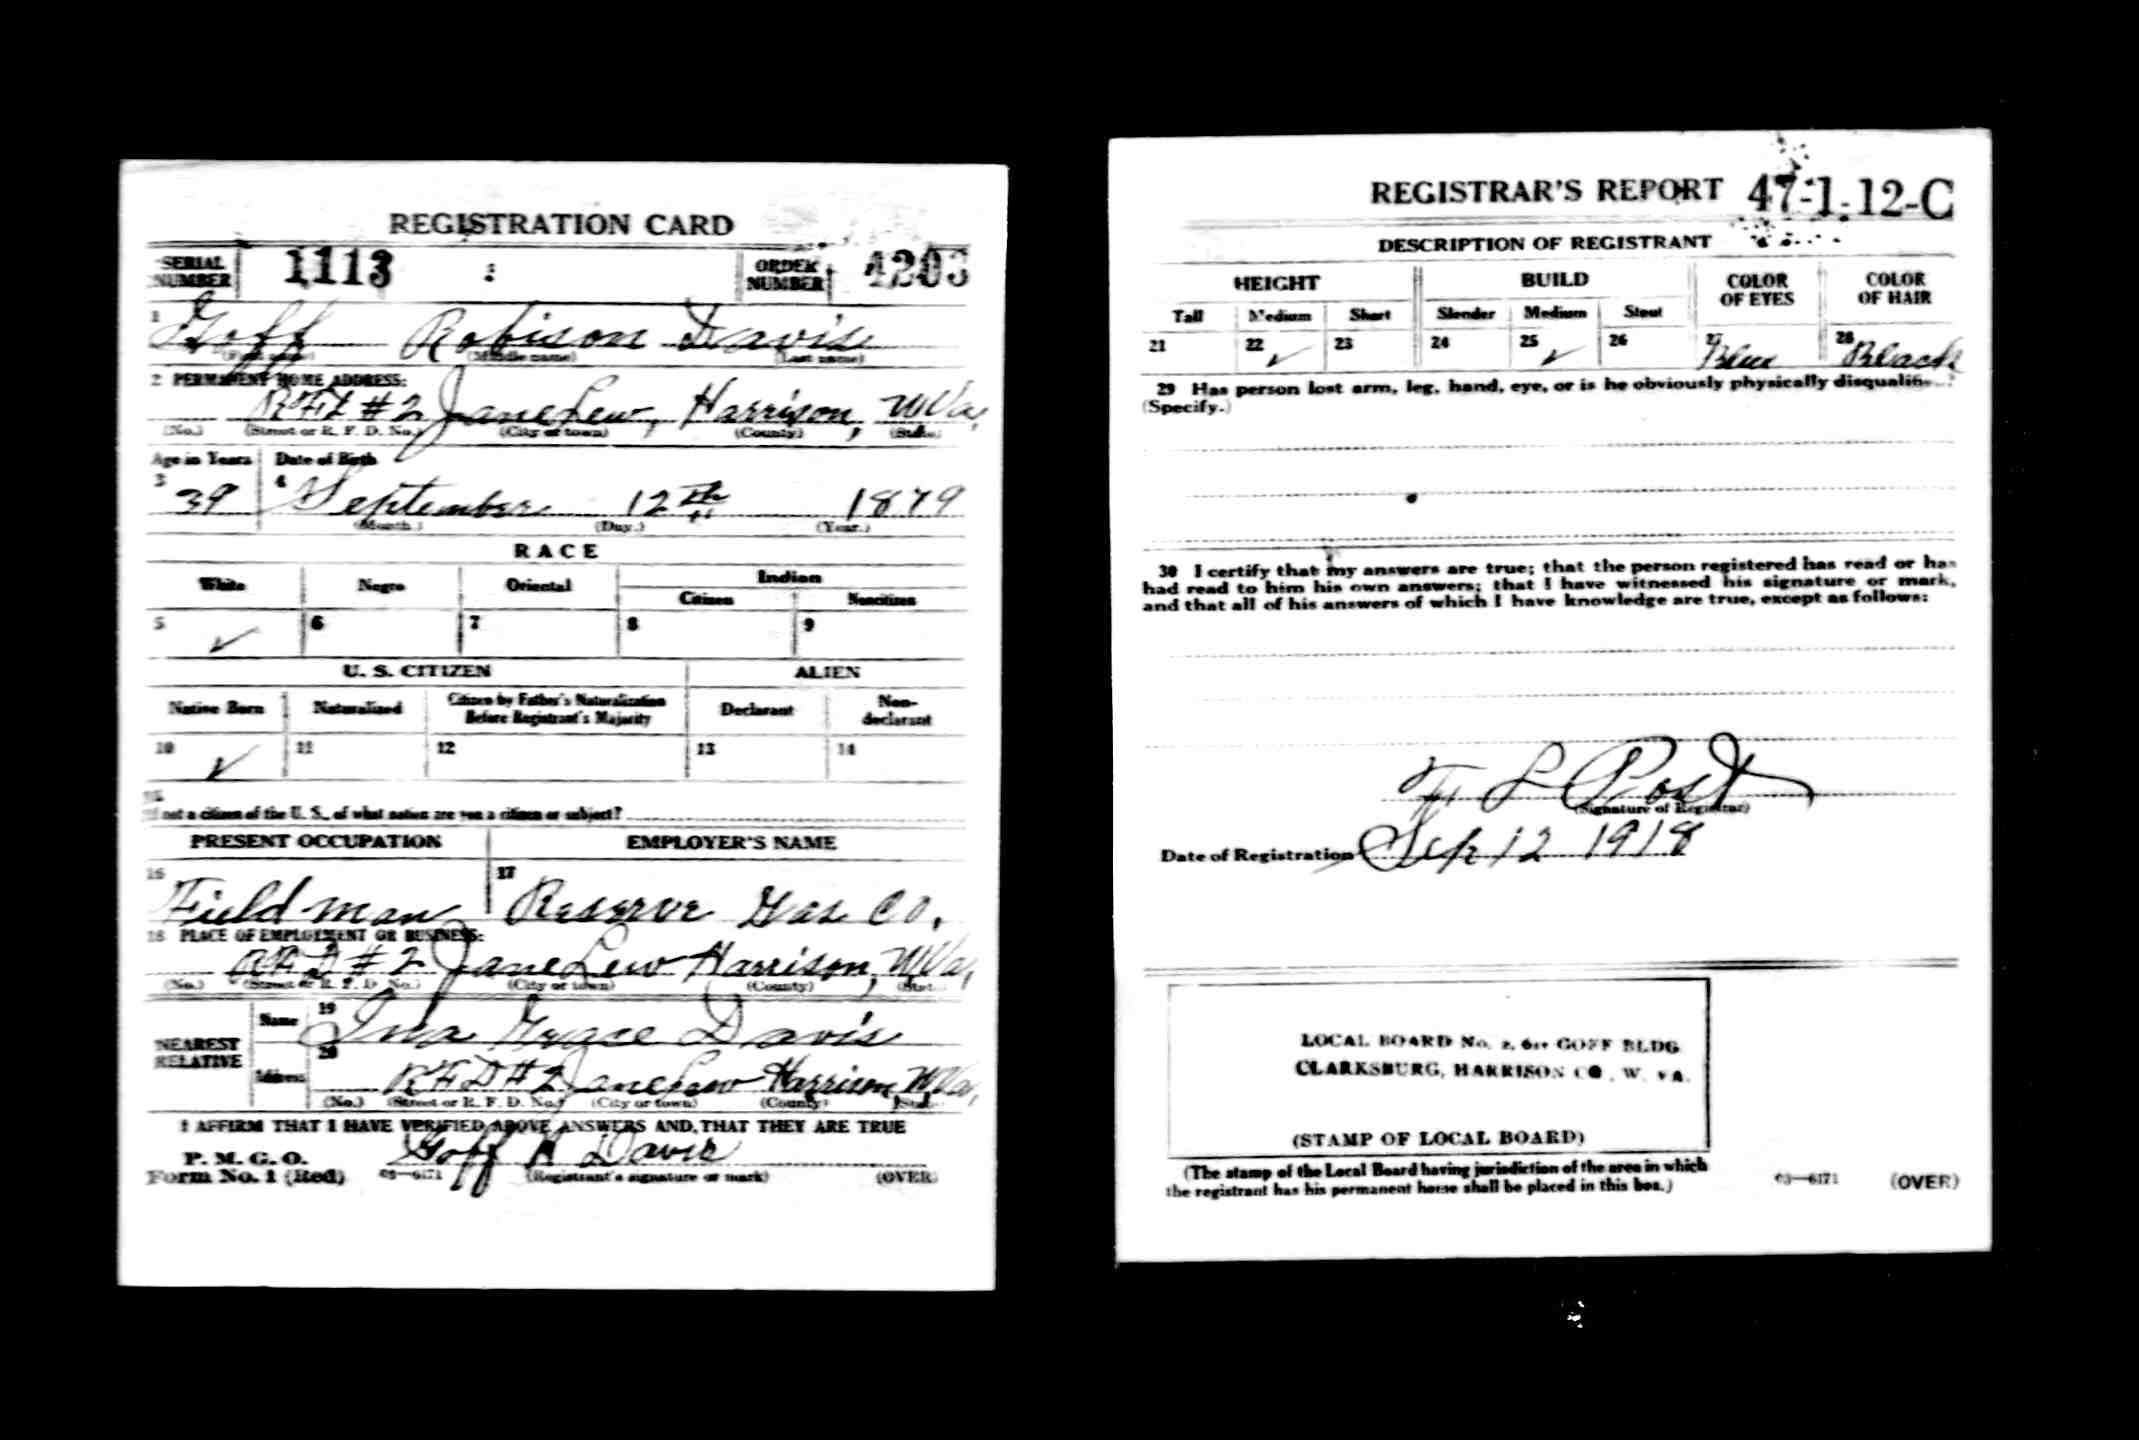 REGISTRATION CARD
SERIAL NUMBER 1113 : ORDER NUMBER 4203
1 Goff Robison Davis
(First name) (Middle name) (Last name)
2 PERMANENT HOME ADDRESS:
RFD #2 Jane Lew, Harrison, W Va,
(No.) (Street or R. F. D. No.) (City or town) (County) (State)
Age in Years Date of Birth
3 39 4 September 12th 1879
(Month.) (Day.) (Year.)
RACE
White Negro Oriental Indian
Citizen Noncitizen
5 ✓ 6 7 8 9
U. S. CITIZEN ALIEN
Native Born Naturalized Citizen by Father's Naturalization Before Registrant's Majority Declarant Non-declarant
10 ✓ 11 12 13 14
15
If not a citizen of the U. S., of what nation are you a citizen or subject?
PRESENT OCCUPATION EMPLOYER'S NAME
16 Field man 17 Reserve Gas Co.
18 PLACE OF EMPLOYMENT OR BUSINESS:
RFD #2 Jane Lew Harrison, W Va,
(No.) (Street or R. F. D. No.) (City or town) (County) (State)
NEAREST RELATIVE Name 19 Ina Grace Davis
Address 20 RFD #2 Jane Lew Harrison, W Va,
(No.) (Street or R. F. D. No.) (City or town) (County) (State)
I AFFIRM THAT I HAVE VERIFIED ABOVE ANSWERS AND THAT THEY ARE TRUE
P. M. G. O.
Form No. 1 (Red) 03—6171 Goff R Davis (Registrant's signature or mark) (OVER)
REGISTRAR'S REPORT 47-1-12-C
DESCRIPTION OF REGISTRANT
HEIGHT BUILD COLOR OF EYES COLOR OF HAIR
Tall Medium Short Slender Medium Stout
21 22 ✓ 23 24 25 ✓ 26 27 Blue 28 Black
29 Has person lost arm, leg, hand, eye, or is he obviously physically disqualified?
(Specify.)
30 I certify that my answers are true; that the person registered has read or has
had read to him his own answers; that I have witnessed his signature or mark,
and that all of his answers of which I have knowledge are true, except as follows:
F L Post
(Signature of Registrar)
Date of Registration Sep 12 1918
LOCAL BOARD No. 2, GOFF BLDG
CLARKSBURG, HARRISON CO., W. VA.
(STAMP OF LOCAL BOARD)
(The stamp of the Local Board having jurisdiction of the area in which
the registrant has his permanent home shall be placed in this box.)
03—6171 (OVER)